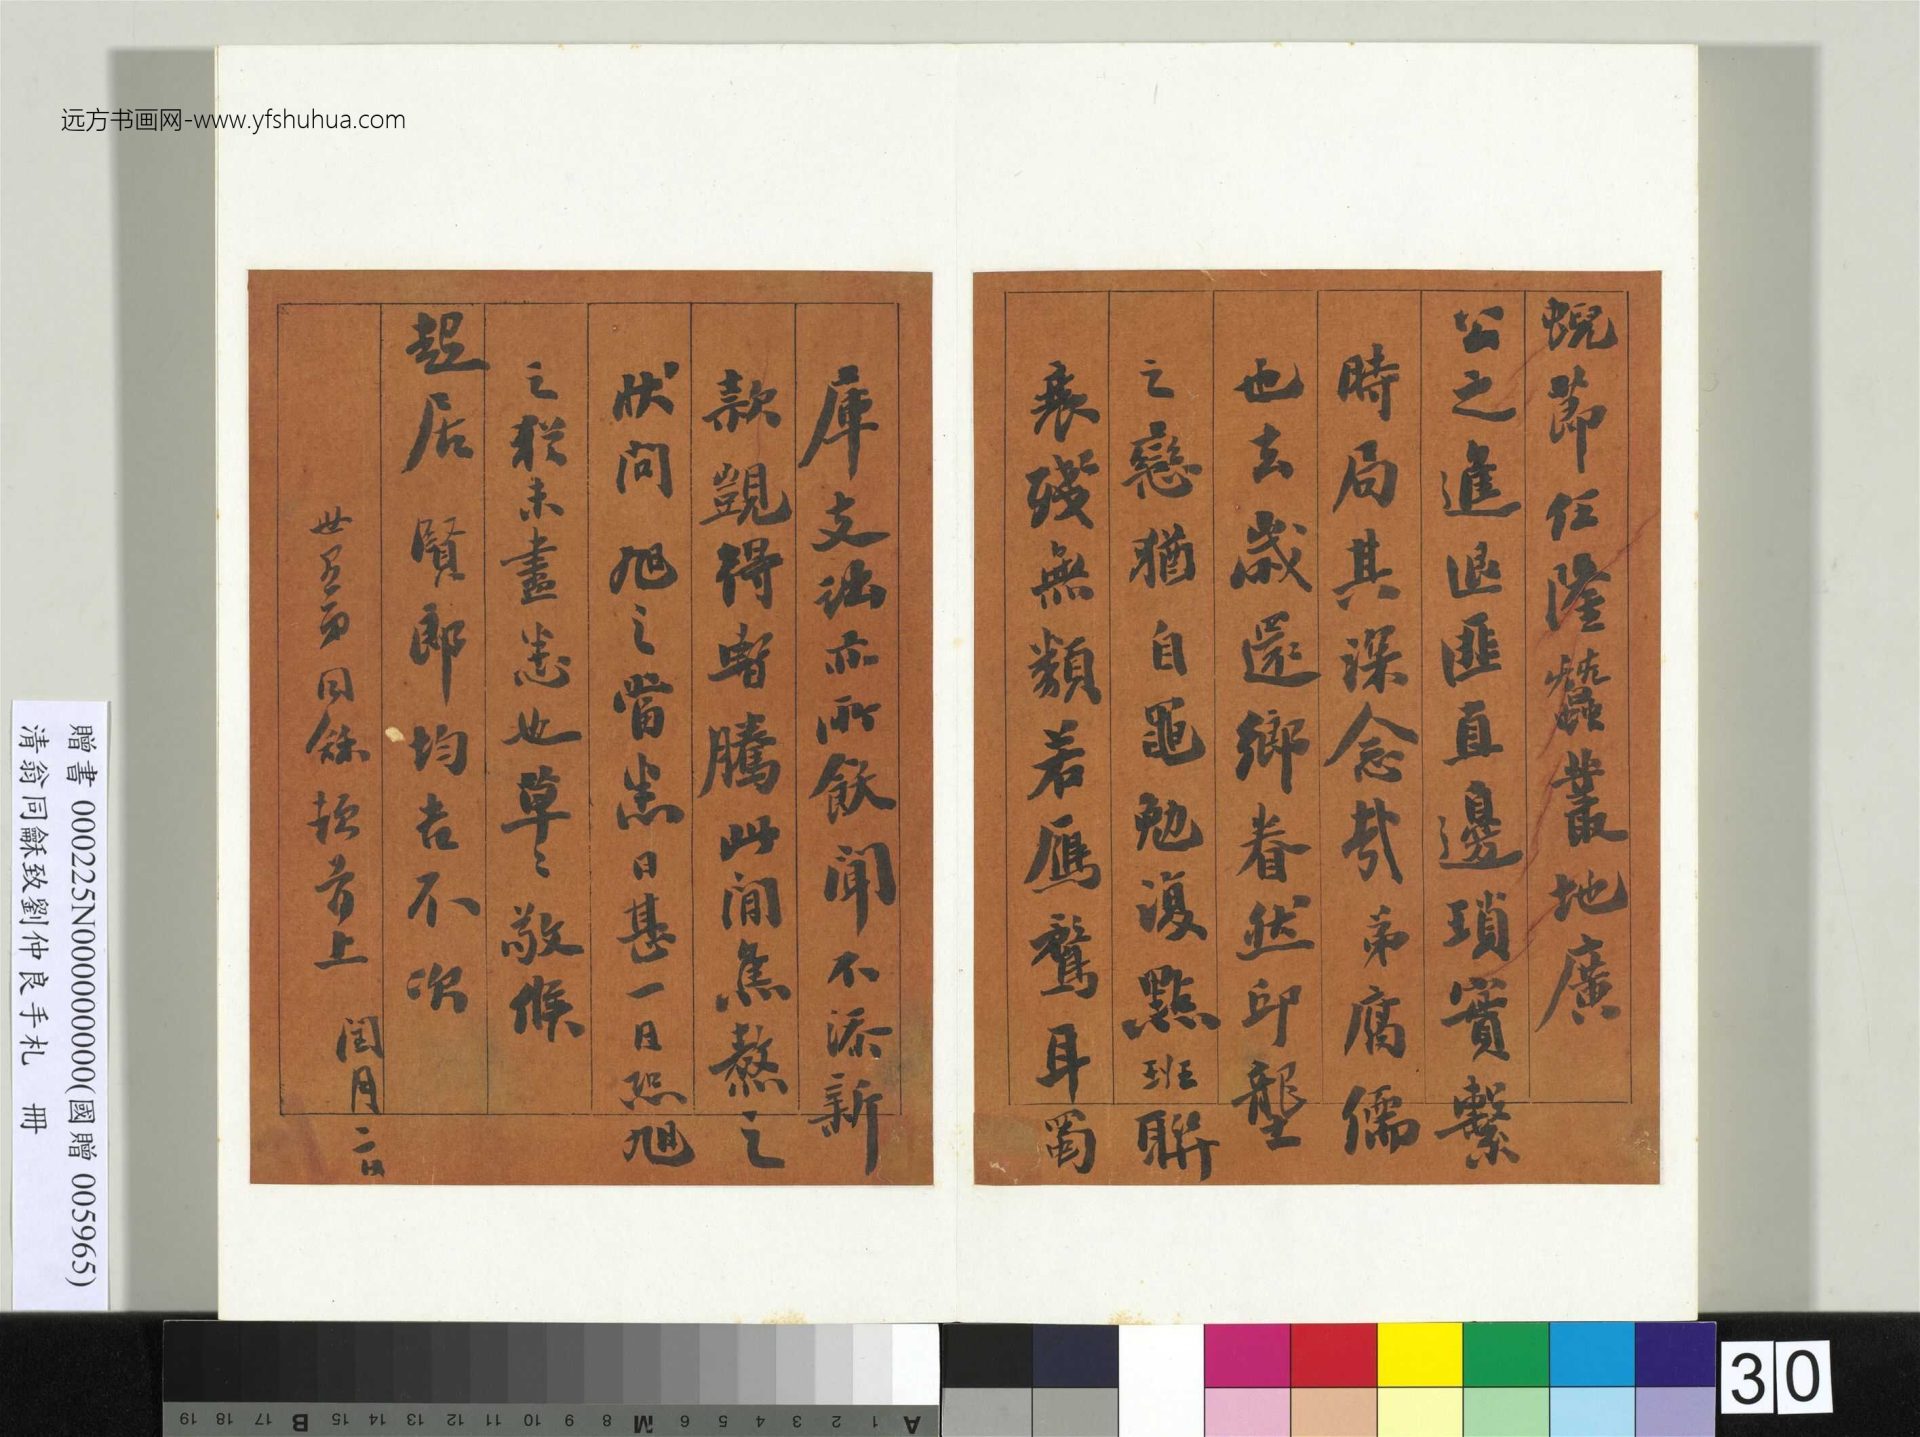 远方书画网-www.yfshuhua.com
蜺節任隆蠶叢地廣
公之進退匪直邊瑣實繫
時局其深念哉弟腐儒
也去歲還鄉眷然邱壟
之戀猶自黽勉復點班聯
衰殘無類若鴈鶩耳蜀
庫支詘亦所飫聞不添新
款覬得暫騰此間焦熬之
狀問旭之當悉日甚一日恐旭
之猶未盡悉也草〻敬候
起居賢郎均吉不次
世愚弟同龢頓首上
閏月二日
贈書 000225N000000000(國贈 005965)
清翁同龢致劉仲良手札 冊
A 1 2 3 4 5 6 M 8 9 10 11 12 13 14 15 B 17 18 19
30